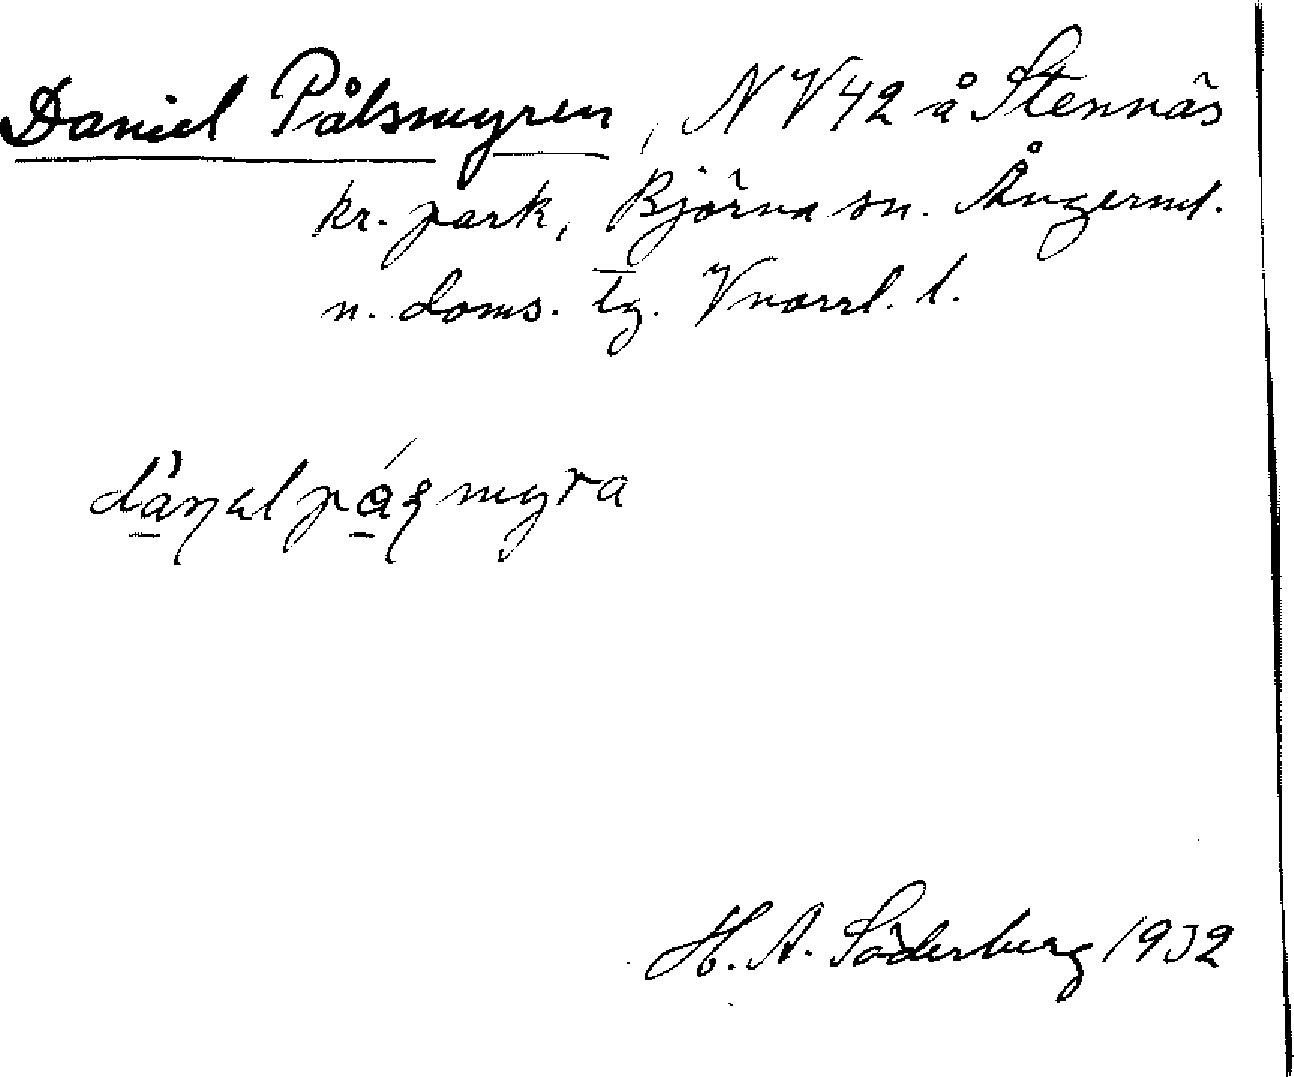 Daniel Pålsmyren, NV 42 å Stennäs
kr. park, Björna sn. Ångerml.
n. doms. tg. Vnorrl. l.
H. A. Söderberg 1932